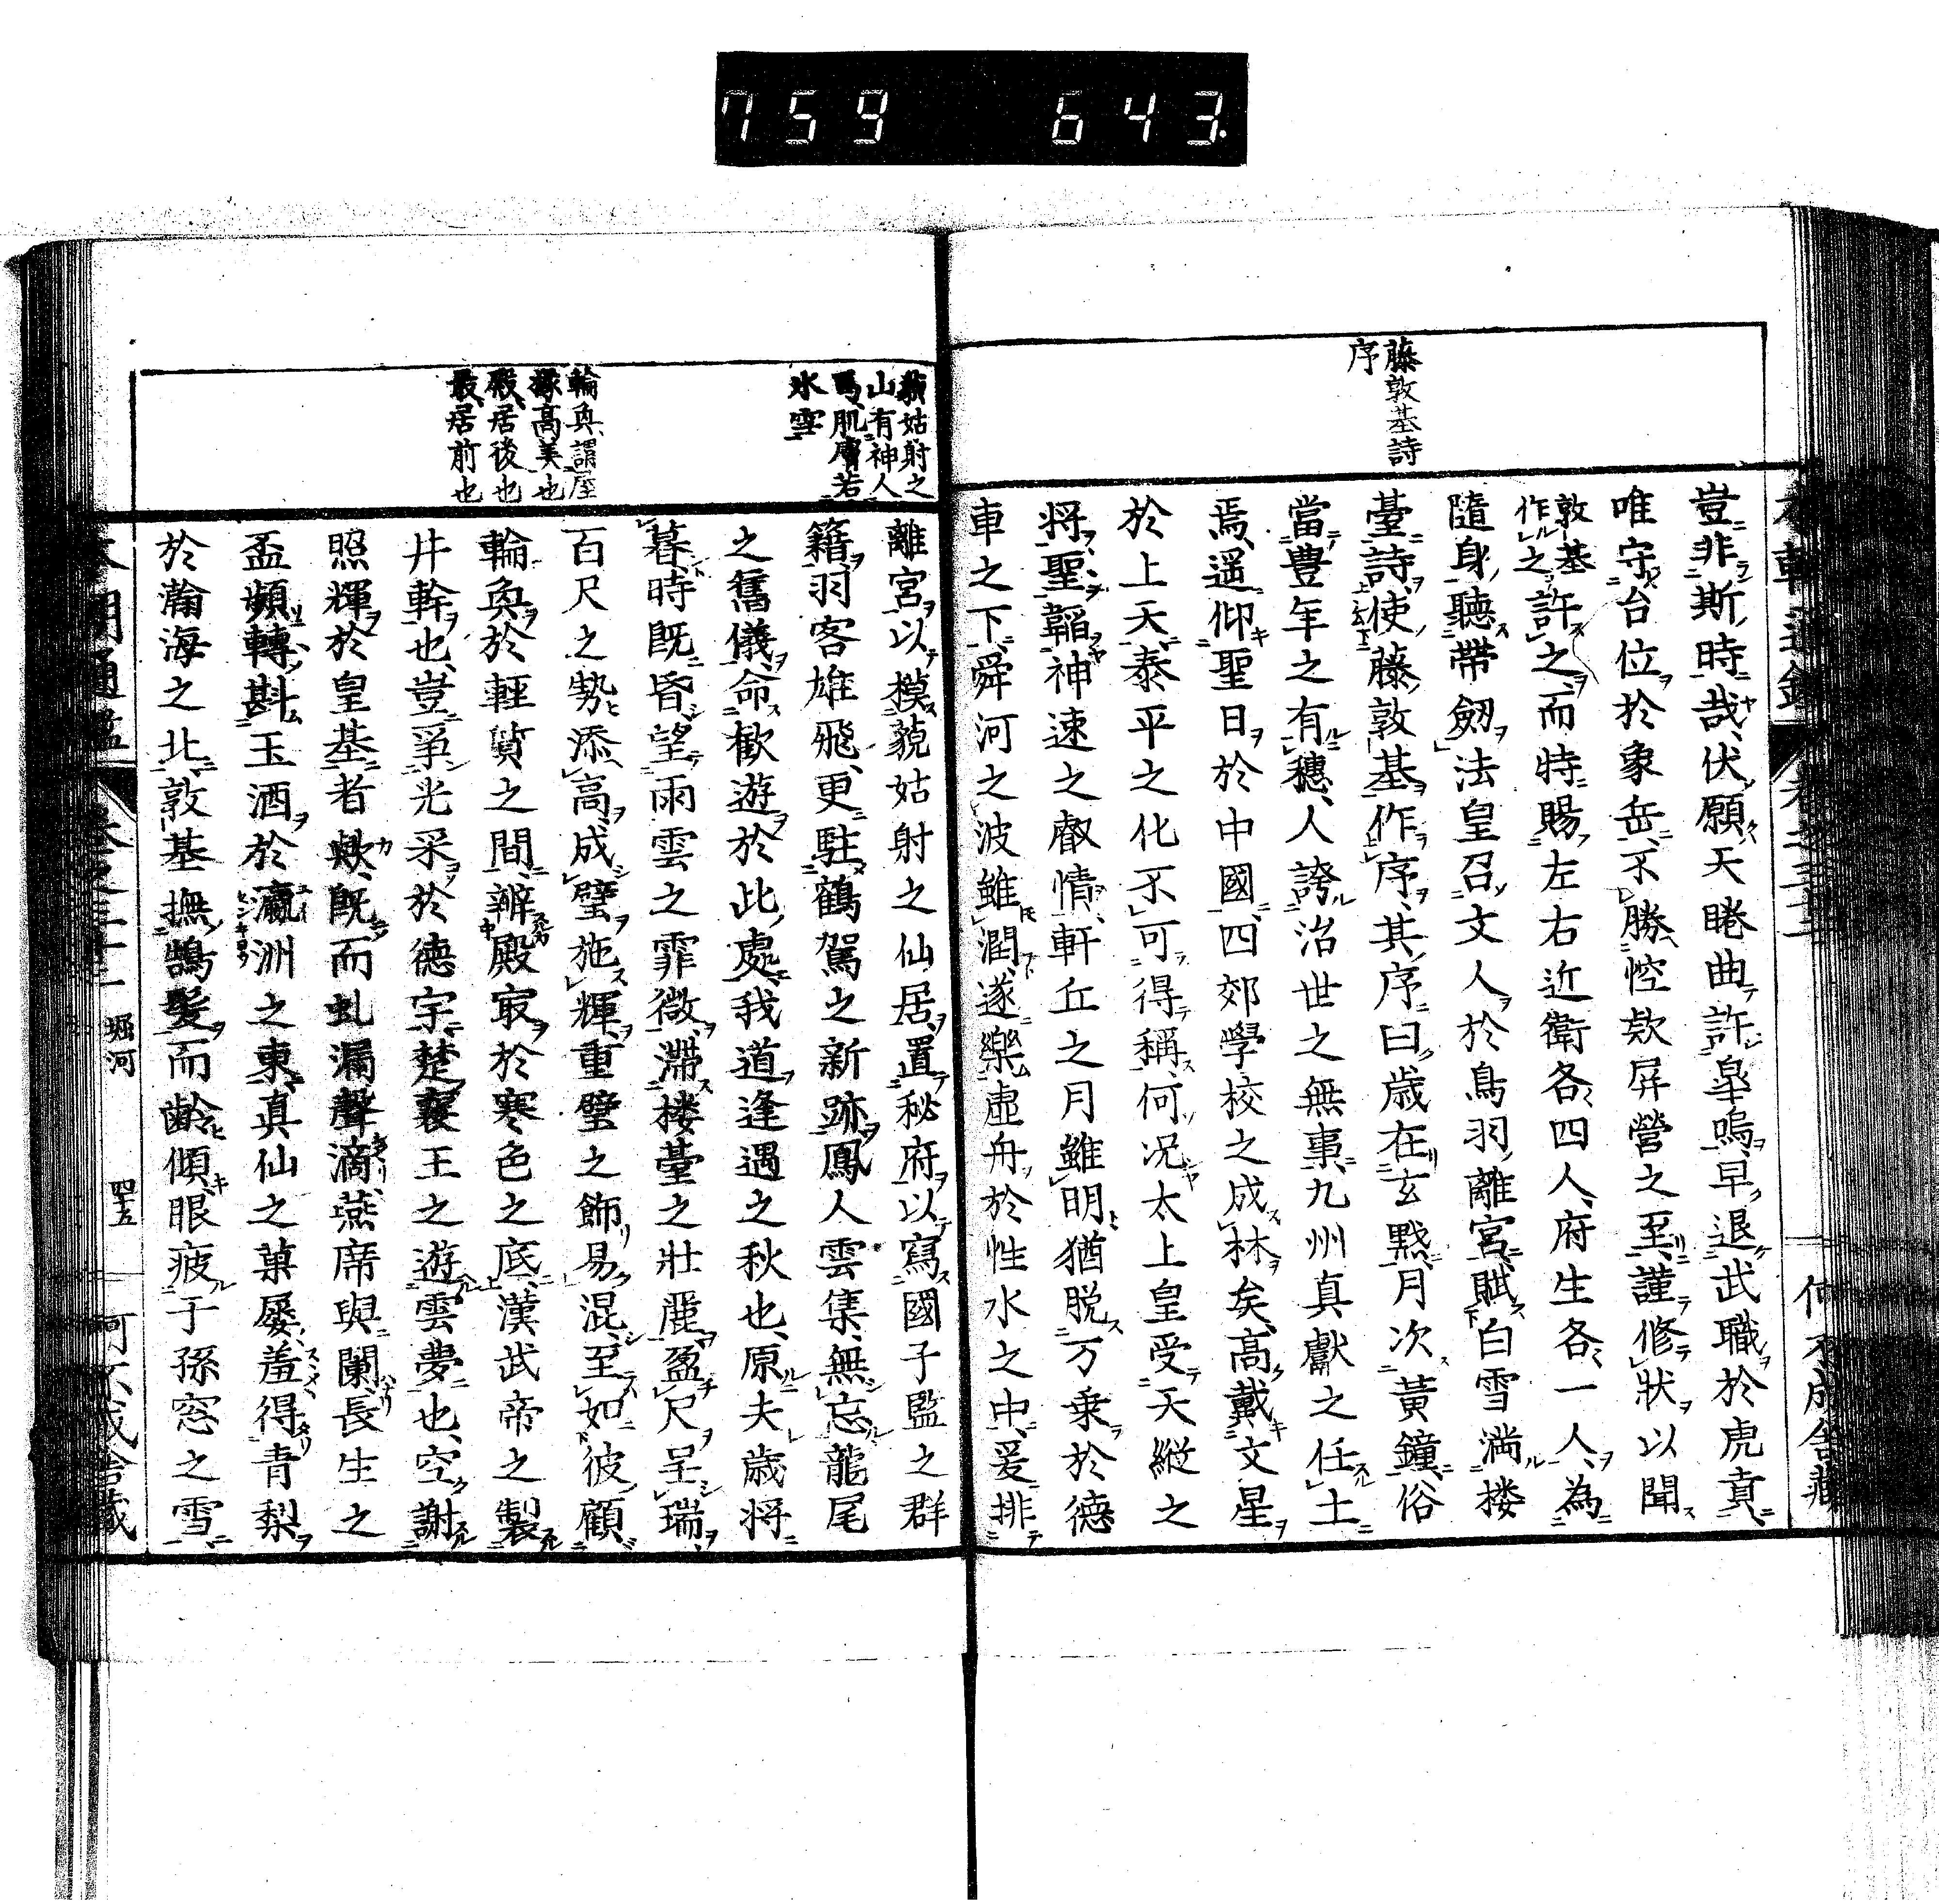 759 643.
藤敦基詩
序
豈非斯時哉伏願天睠曲許皐嗚早退武職於虎賁
唯守台位於象岳不勝悾款屏營之至謹修狀以聞
敦基作之許之而特賜左右近衛各四人府生各一人為
隨身聽帶劔法皇召文人於鳥羽離宮賦白雪満楼
臺詩使藤敦基作序其序曰歳在玄黙月次黃鐘俗
當豊年之有穗人誇治世之無事九州真獻之任土
焉遥仰聖日於中國四郊學校之成林矣高戴文星
於上天泰平之化不可得稱何况太上皇受天縱之
将聖韜神速之叡情軒丘之月雖明猶脱万乗於德
車之下舜河之波雖濶遂樂虚舟於性水之中爰排
藐姑射之
山有神人
焉肌膚若
氷雪
輪奐謂屋
椽高美也
殿居後也
最居前也
離宮以模藐姑射之仙居置秘府以寫國子監之群
籍羽客雄飛更駐鶴駕之新跡鳳人雲集無忘龍尾
之舊儀命歓遊於此處我道逢遇之秋也原夫歳将
暮時既昏望雨雲之霏微滞楼臺之壮麗盈尺呈瑞
百尺之勢添高成璧施輝重璧之飾易混至如彼顧
輪奐於輕質之間辨殿最於寒色之底漢武帝之製
井幹也豈爭光采於德宇楚襄王之遊雲夢也空謝
照輝於皇基者歟既而虬漏聲滴燕席與闌長生之
盃頻轉斟玉酒於瀛洲之東真仙之菓屡羞得青梨
於瀚海之北敦基撫鵠髪而齢傾眼疲于孫窓之雪
堀河
四十五